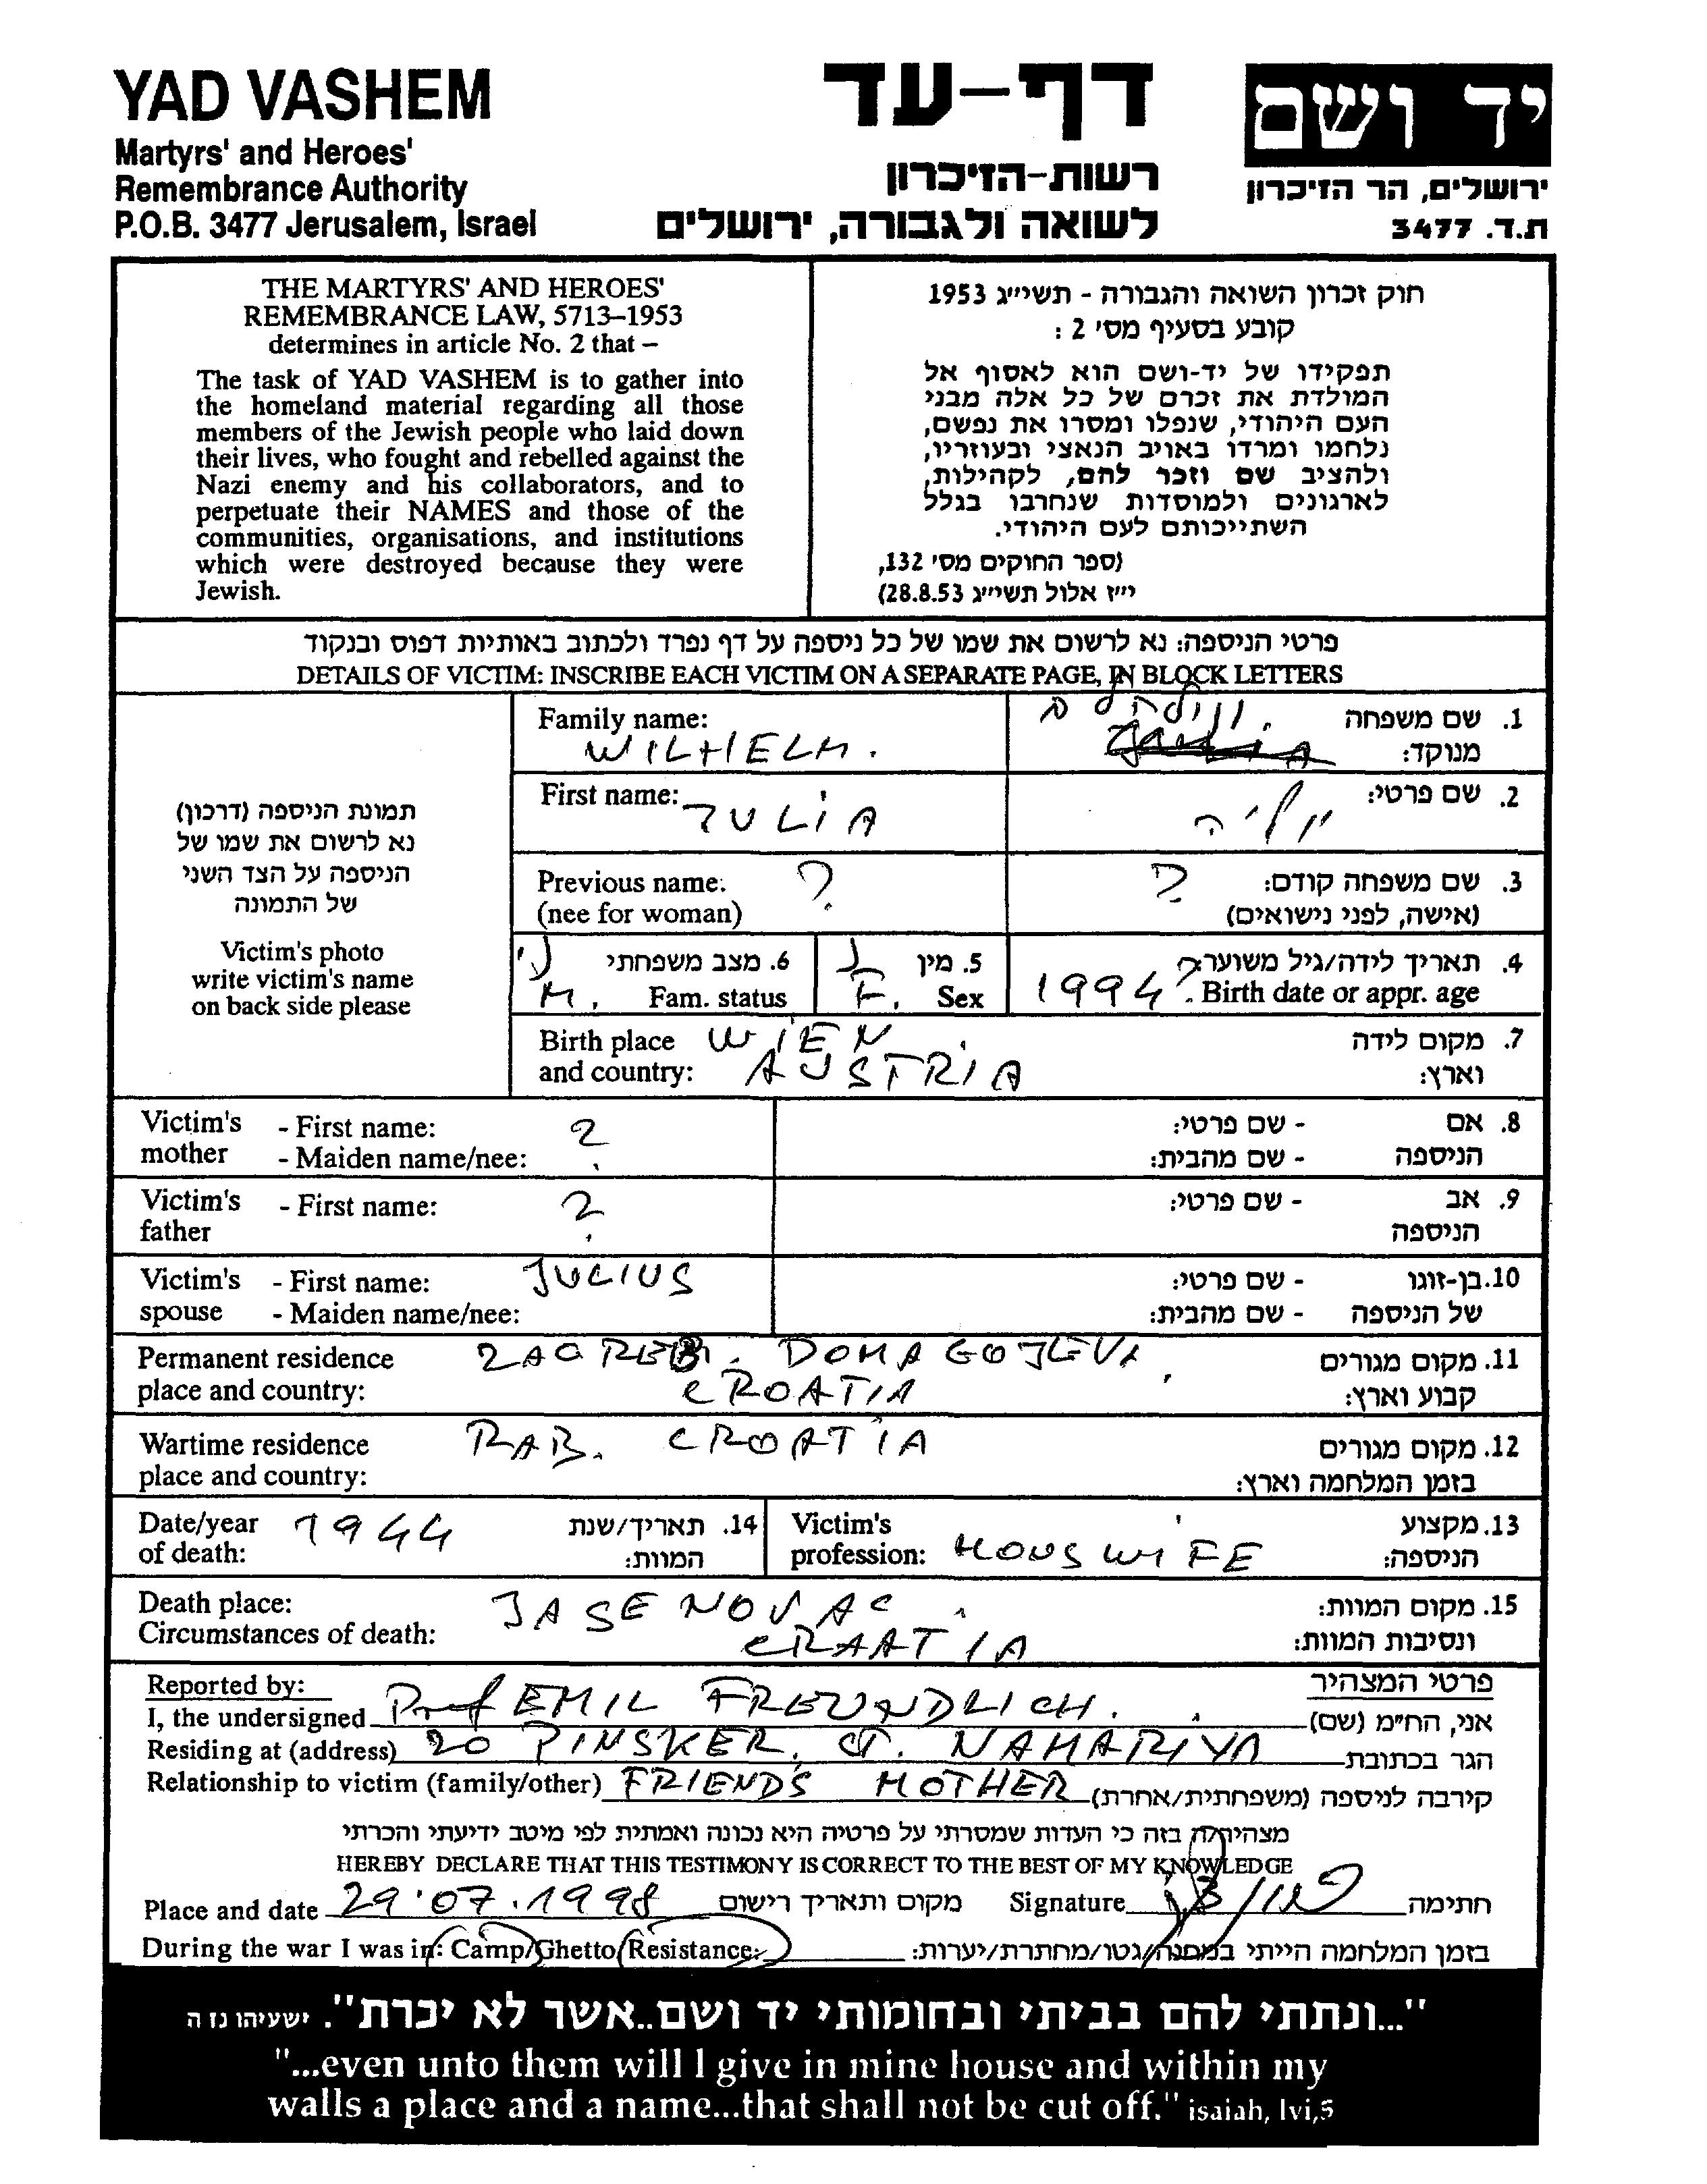 YAD VASHEM
Martyrs' and Heroes'
Remembrance Authority
P.O.B. 3477 Jerusalem, Israel
דף-עד
רשות-הזיכרון
לשואה ולגבורה, ירושלים
יד ושם
ירושלים, הר הזיכרון
ת.ד. 3477
THE MARTYRS' AND HEROES'
REMEMBRANCE LAW, 5713–1953
determines in article No. 2 that –
The task of YAD VASHEM is to gather into
the homeland material regarding all those
members of the Jewish people who laid down
their lives, who fought and rebelled against the
Nazi enemy and his collaborators, and to
perpetuate their NAMES and those of the
communities, organisations, and institutions
which were destroyed because they were
Jewish.
חוק זכרון השואה והגבורה - תשי״ג 1953
קובע בסעיף מס׳ 2 :
תפקידו של יד-ושם הוא לאסוף אל
המולדת את זכרם של כל אלה מבני
העם היהודי, שנפלו ומסרו את נפשם,
נלחמו ומרדו באויב הנאצי ובעוזריו,
ולהציב שם וזכר להם, לקהילות,
לארגונים ולמוסדות שנחרבו בגלל
השתייכותם לעם היהודי.
(ספר החוקים מס׳ 132,
י״ז אלול תשי״ג 28.8.53)
פרטי הניספה: נא לרשום את שמו של כל ניספה על דף נפרד ולכתוב באותיות דפוס ובנקוד
DETAILS OF VICTIM: INSCRIBE EACH VICTIM ON A SEPARATE PAGE, IN BLOCK LETTERS
תמונת הניספה (דרכון)
נא לרשום את שמו של
הניספה על הצד השני
של התמונה
Victim's photo
write victim's name
on back side please
Family name: וילהלם 1. שם משפחה
WILHELM. מנוקד:
First name: JULIA יוליה 2. שם פרטי:
Previous name: ? ? 3. שם משפחה קודם:
(nee for woman) (אישה, לפני נישואים)
נ׳ 6. מצב משפחתי נ 5. מין ? 4. תאריך לידה/גיל משוער:
M. Fam. status F. Sex 1994? Birth date or appr. age
Birth place WIEN 7. מקום לידה
and country: AUSTRIA וארץ:
Victim's - First name: ? - שם פרטי: 8. אם
mother - Maiden name/nee: - שם מהבית: הניספה
Victim's - First name: ? - שם פרטי: 9. אב
father הניספה
Victim's - First name: JULIUS - שם פרטי: 10. בן-זוגו
spouse - Maiden name/nee: - שם מהבית: של הניספה
Permanent residence ZAGREB. DOMAGOJEVA, 11. מקום מגורים
place and country: CROATIA קבוע וארץ:
Wartime residence RAB. CROATIA 12. מקום מגורים
place and country: בזמן המלחמה וארץ:
Date/year 1944 14. תאריך/שנת Victim's 13. מקצוע
of death: המוות: profession: HOUSWIFE הניספה:
Death place: JASENOVAC. 15. מקום המוות:
Circumstances of death: CRAATIA ונסיבות המוות:
Reported by: פרטי המצהיר
I, the undersigned Prof EMIL FREUNDLICH. אני, הח״מ (שם)
Residing at (address) 20 PINSKER, ST. NAHARIYA הגר בכתובת
Relationship to victim (family/other) FRIENDS MOTHER קירבה לניספה (משפחתית/אחרת)
מצהיר/ה בזה כי העדות שמסרתי על פרטיה היא נכונה ואמתית לפי מיטב ידיעתי והכרתי
HEREBY DECLARE THAT THIS TESTIMONY IS CORRECT TO THE BEST OF MY KNOWLEDGE
Place and date 29.07.1998 מקום ותאריך רישום Signature חתימה
During the war I was in: Camp/Ghetto/Resistance: בזמן המלחמה הייתי במחנה/גטו/מחתרת/יערות:
"...ונתתי להם בביתי ובחומותי יד ושם..אשר לא יכרת". ישעיהו נז ה
"...even unto them will I give in mine house and within my
walls a place and a name...that shall not be cut off." isaiah, lvi,5